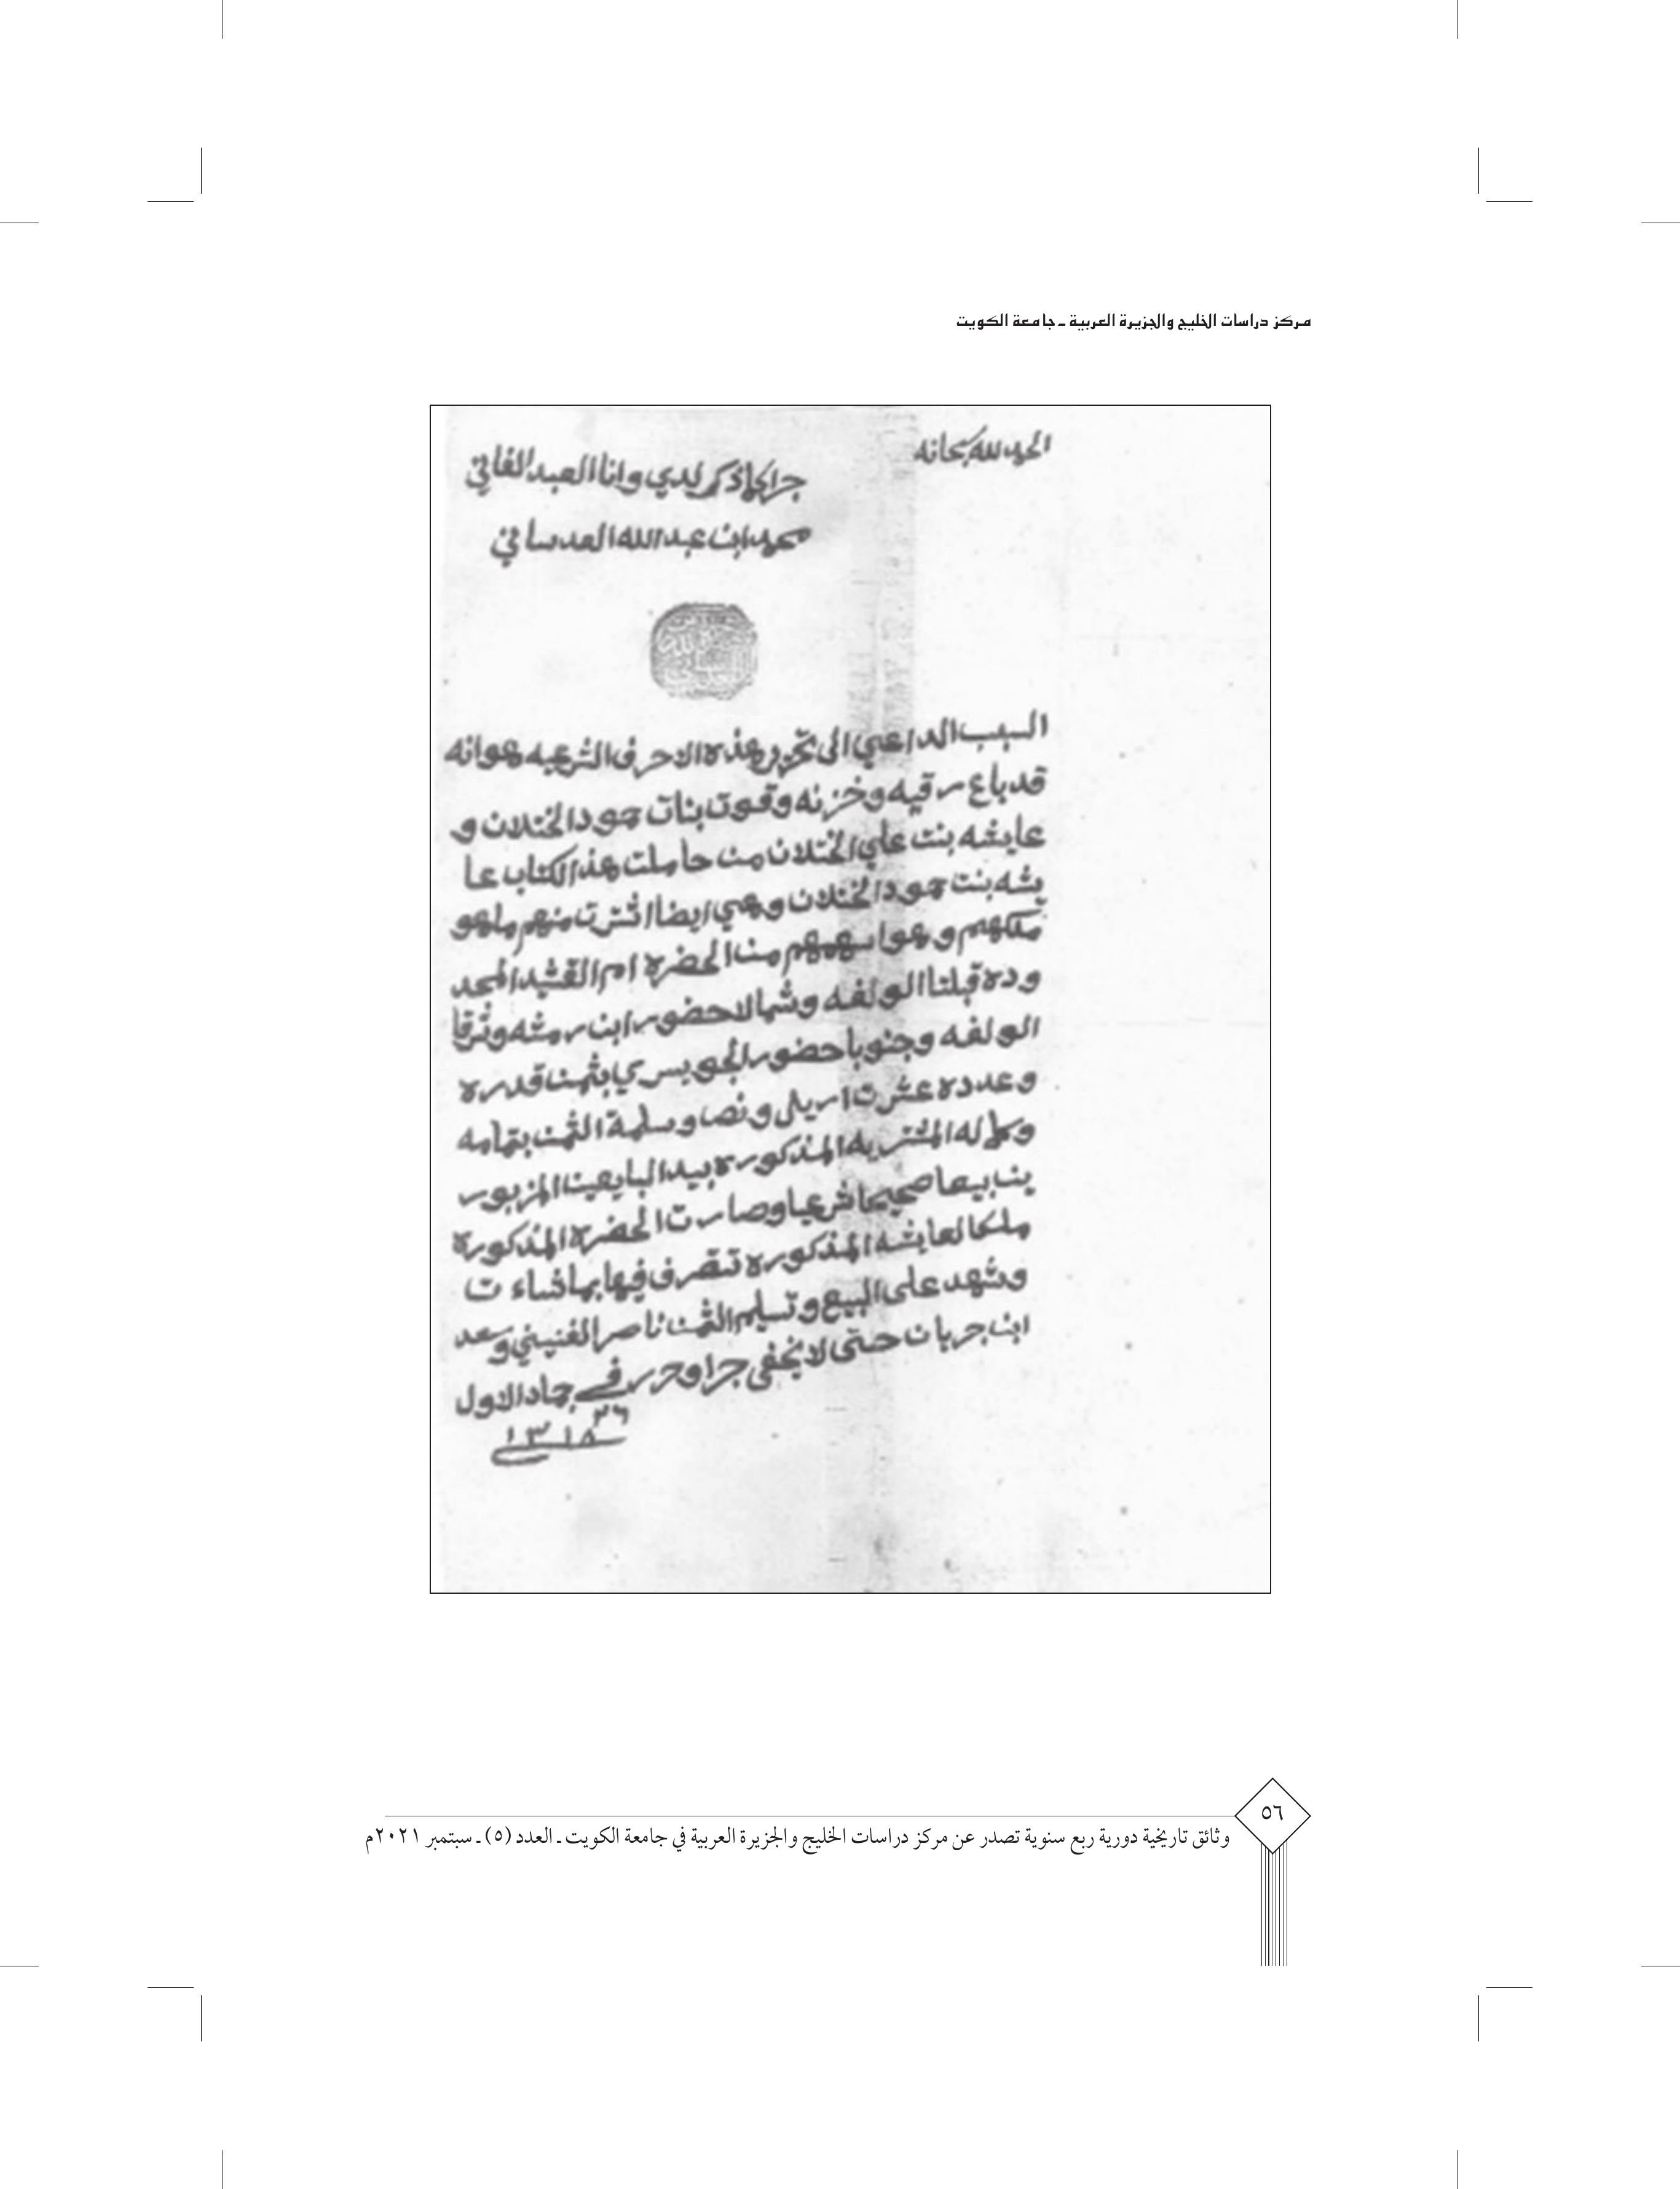 مركز دراسات الخليج والجزيرة العربية ـ جامعة الكويت
الحمد لله سبحانه
جرا كما ذكر لدي وانا العبد الفاني
محمد ابن عبدالله العدساني
السبب الداعي الى تحرير هذه الاحرف الشرعيه هو انه
قد باع رقيه وخزنه وقوت بنات حمود الختلان و
عايشه بنت علي الختلان من حاملت هذ الكتاب عا
يشه بنت حمود الختلان وهي ايضا اشترت منهم ما هو
ملكهم وهو اسهمهم من الحضره ام القشيد المحد
وده قبلتا الولفه وشمالا حضور ابن رمثه وشرقا
الولفه وجنوبا حضور الجويسري بثمن قدره
وعدده عشرت اريل ونص وسلمة الثمن بتمامه
وكماله المشتريه المذكوره بيد البايعين المزبور
ين بيعا صحيحا شرعيا وصارت الحضرة المذكورة
ملكا لعايشه المذكوره تتصرف فيها بما شاءت
وشهد على البيع وتسليم الثمن ناصر الغنيني وسعد
ابن جربان حتى لا يخفى جرا وحرر في جماد الاول
٢٦
١٣١٨
٥٦
وثائق تاريخية دورية ربع سنوية تصدر عن مركز دراسات الخليج والجزيرة العربية في جامعة الكويت ـ العدد (٥) ـ سبتمبر ٢٠٢١م